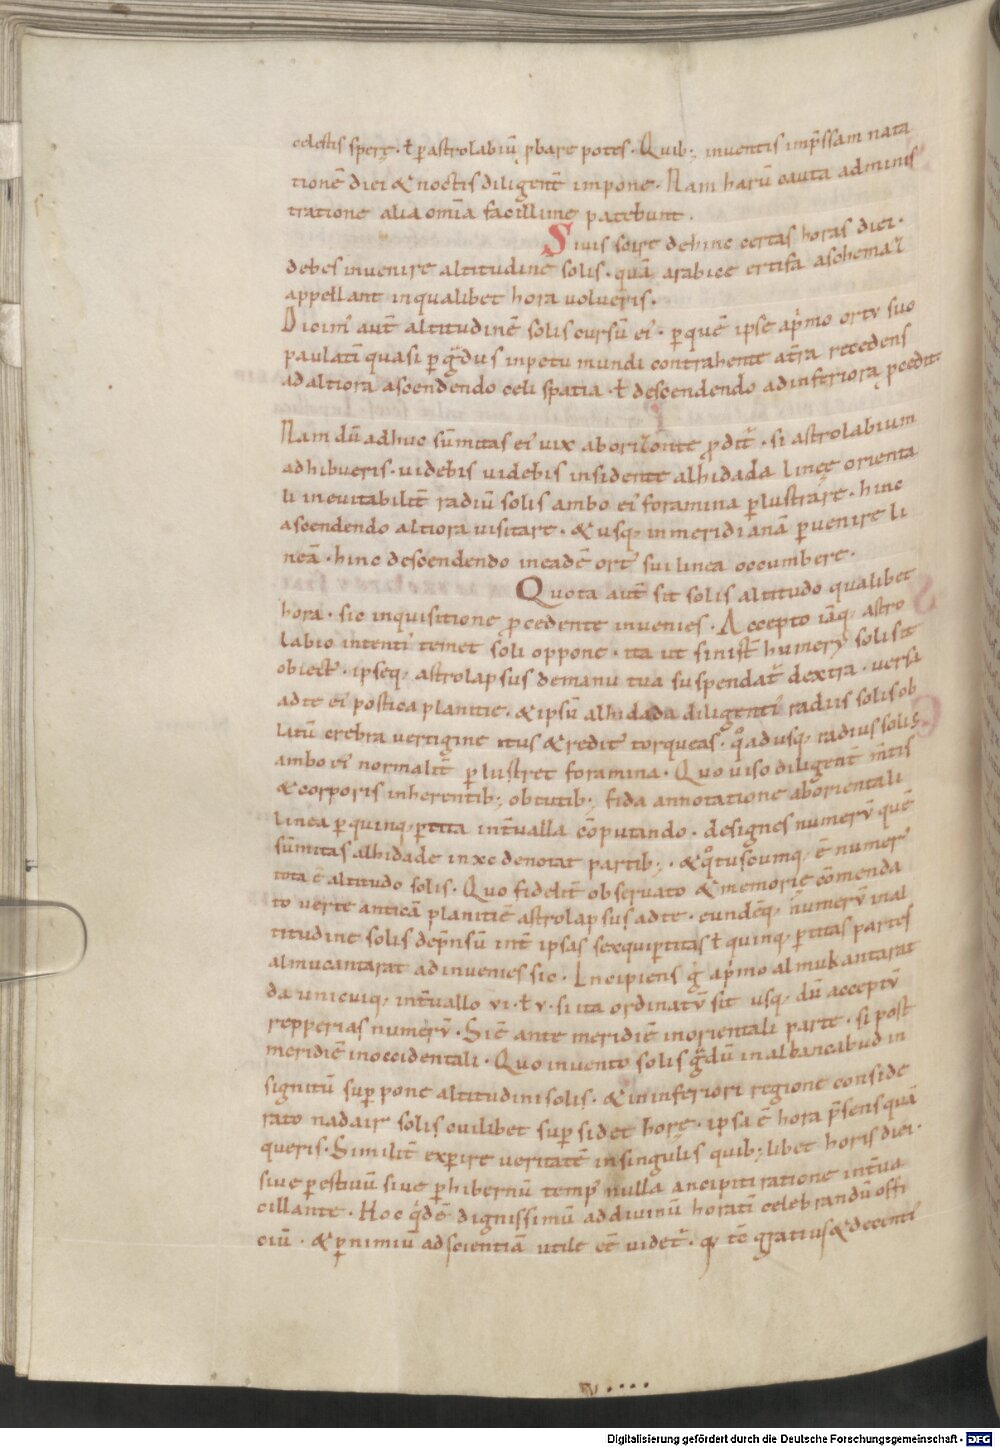 celestis sperę · ł p̱ astrolabiū ꝓbare potes · Quib; inventis imp̄ssam nata
tionē diei & noctis diligent̄ impone · Nam harū cauta adminis
tratione alia om̄ia facillime patebunt ·
Sivis scire dehinc certas horas diei ·
debes invenire altitudinē solis · quā arabice ertifa
appellant inqualibet hora volveris ·
Dicim̄ aut̄ altitudinē solis cursū ei · ꝑquē ipse ap̄mo ortu suo
paulatī quasi ꝑ gͣdus inpetu mundi contrahente at̄ra recedens
ad altiora ascendendo celi spatia · ł descendendo ad inferiora ꝓcedit ·
Nam dū adhuc sūmitas ei vix aborizonte ꝓdit̄ · si astrolabium
adhibueris · videbis videbis insidente alhidada lineę orienta
li inevitabilit̄ radiū solis ambo ei foramina ꝑlustrare · hinc
ascendendo altiora visitare · & usq; in meridianā ꝑvenire li
neā · hinc descendendo in eadē ort̄ sui linea occumbere ·
Quota aut̄ sit solis altitudo qualibet
hora · sic inquisitione ꝓcedente invenies · Accepto iāq; astro
labio intenti temet soli oppone · ita ut sinist̄ humerꝰ soli sit
obiect̄ · ipseq; astrolapsus de manu tua suspendat̄ dextra · versa
ad te ei postica planitie · & ipsū alhidada diligenti radiis solis ob
litū crebra vertigine itus & redit̄ torqueas · qͦadusq; radius solis
ambo ei normalit̄ ꝑlustret foramina · Quo viso diligent̄ m̄tis
& corporis inherentib; obtutib; fida annotatione aborientali
linea ꝑ quinq; ꝑtita int̄valla cōputando · designes numerū quē
sūmitas alhidade in xc denotat partib; · & qͦtuscumq; ē numerꝰ
tota ē altitudo solis · Quo fidelit̄ observato & memorie cōmenda
to verte anticā planitiē astrolapsus ad te · eundēq; numerū in al
titudine solis dep̄nsū int̄ ipsas sexquiꝑtitas ł quinq; ꝑtitas partes
almucantarat adinvenies sic · Incipiens g̊ ap̄mo almukantarat
da unicuiq; int̄vallo vi · ł v · si ita ordinatū sit usq; dū acceptū
repperias numerū · Si ē ante meridiē in orientali parte · si post
meridiē in occidentali · Quo invento solis gͣdū in alhancabud in
signitū suꝑpone altitudini solis · & in inferiori regione conside
rato nadair solis cuilibet suꝑsidet horę · ipsa ē hora p̄sens quā
queris · Similit̄ exꝑire veritatē in singulis quib;libet horis diei ·
sive ꝑ estivū sive ꝑ hibernū tempꝰ nulla ancipiti ratione int̄va
cillante · Hoc qͥdē dignissimū ad divinū horatī celebrandū offi
ciū · & ꝑnimiū ad scientiā utile eē videt̄ · gratius & decenti
IV · · · ·
Digitalisierung gefördert durch die Deutsche Forschungsgemeinschaft - DFG